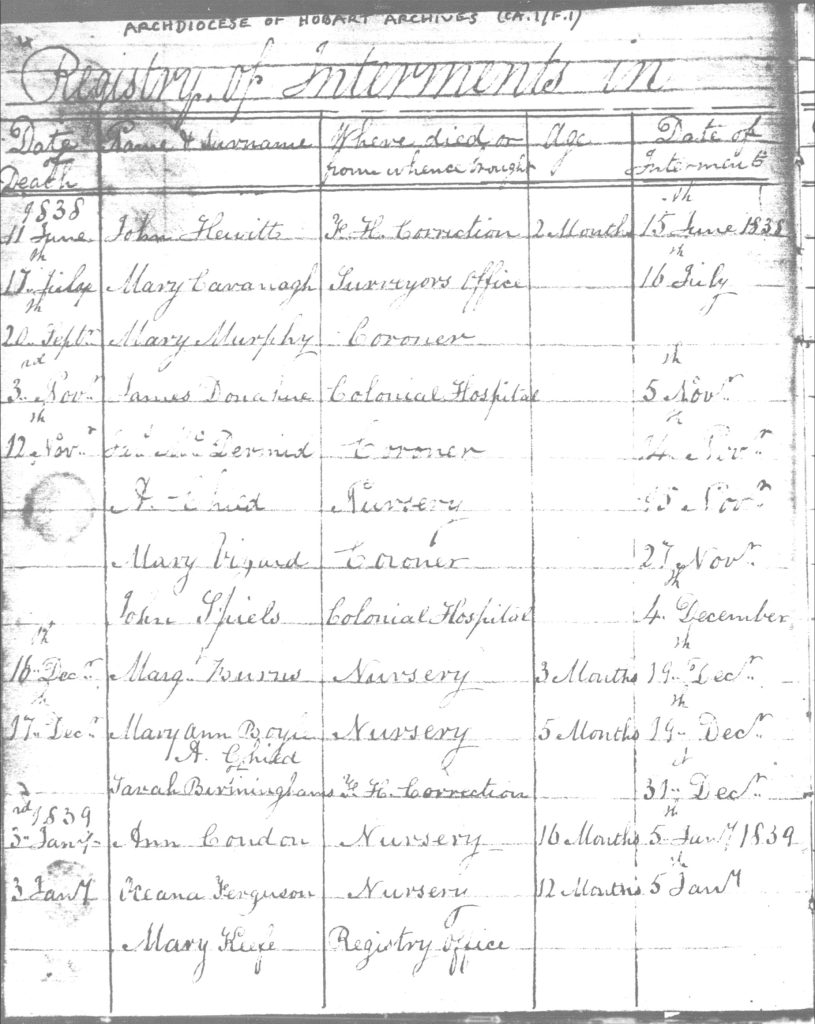 ARCHDIOCESE OF HOBART ARCHIVES (CA.1/F.1)
Registry of Interments in
Date of Death Name & Surname Where died or from whence brought Age Date of Interment
1838
11 June John Hewitt F. H. Correction 2 Months 15th June 1838
17th July Mary Cavanagh Surveyors Office 16th July
20th Septr Mary Murphy Coroner
3rd Novr James Donahue Colonial Hospital 5th Novr
12th Novr Mc Dermid Coroner 14th Novr
A Child Nursery 15 Novr
Mary Coroner 27 Novr
John Spiels Colonial Hospital 4th December
16th Decr Margt Burns Nursery 3 Months 19th Decr
17th Decr Mary Ann Boyle Nursery 5 Months 19th Decr
A Child of
Sarah Birminghams F. H. Correction 31st Decr
1839
3rd Jany Ann Condon Nursery 16 Months 5th Jany 1839
3 Jany Oceana Ferguson Nursery 12 Months 5th Jany
Mary Keefe Registry Office